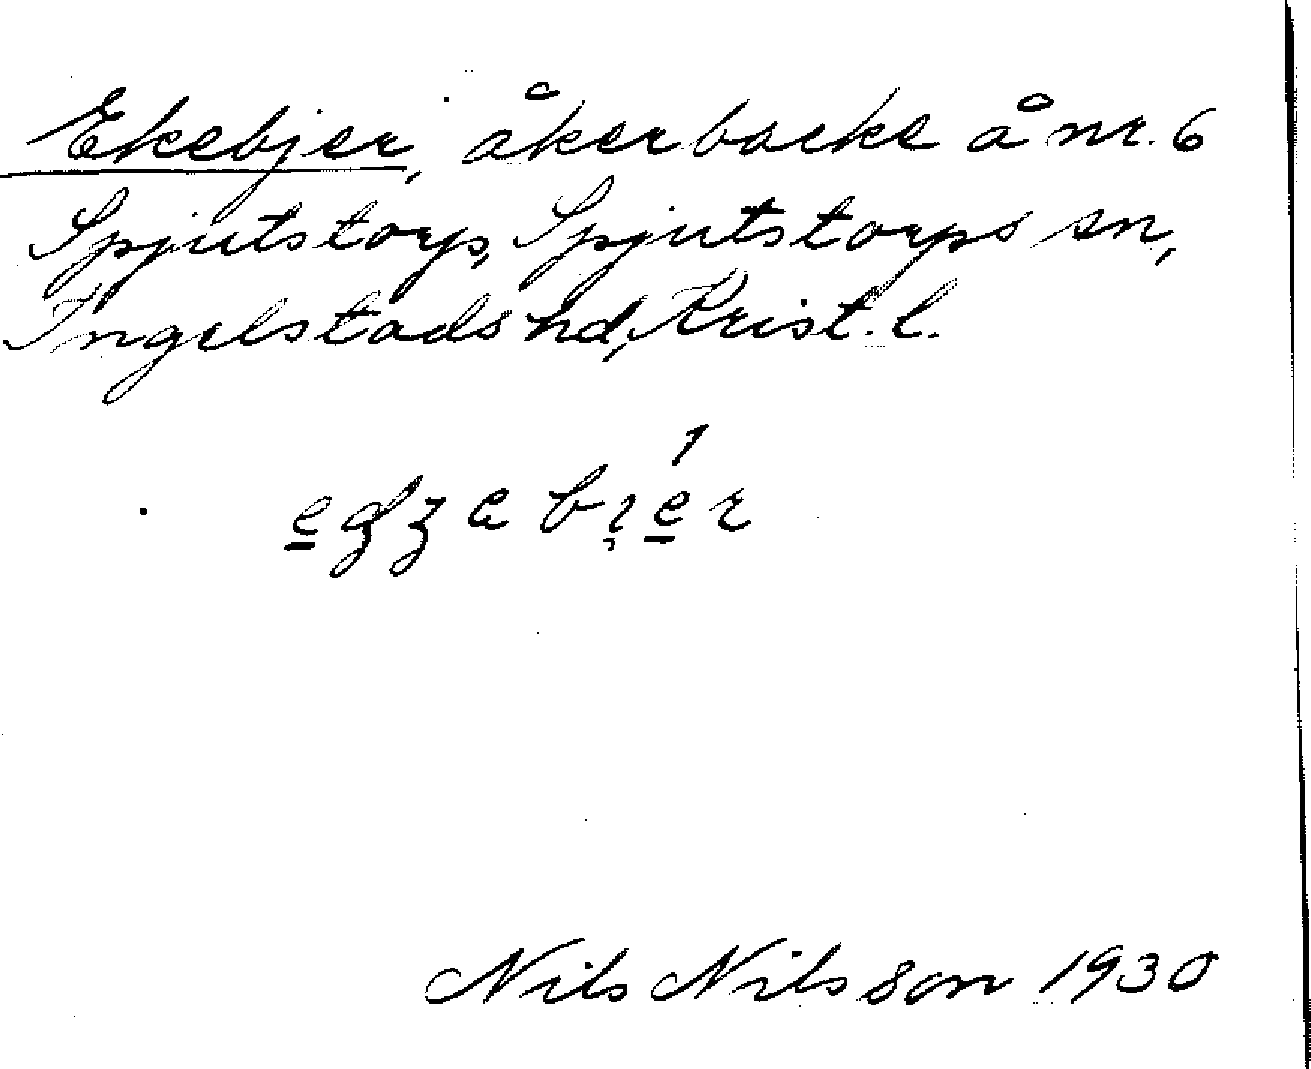 Ekebjer, åkerbacke å nr. 6
Spjutstorp, Spjutstorps sn,
Ingelstads hd, Krist. l.
Nils Nilsson 1930